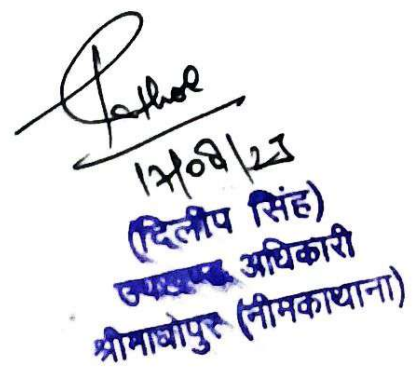 Rathore
17/08/23
(दिलीप सिंह)
उपखण्ड अधिकारी
श्रीमाधोपुर (नीमकाथाना)